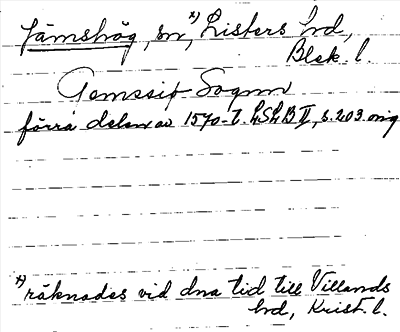 Jämshög, sn, x) Listers hd,
Blek. l.
Gemssip Sognn
förra delen av 1570-t. LSLB II, s. 203 orig
x) räknades vid dna tid till Villands
hd, Krist. l.